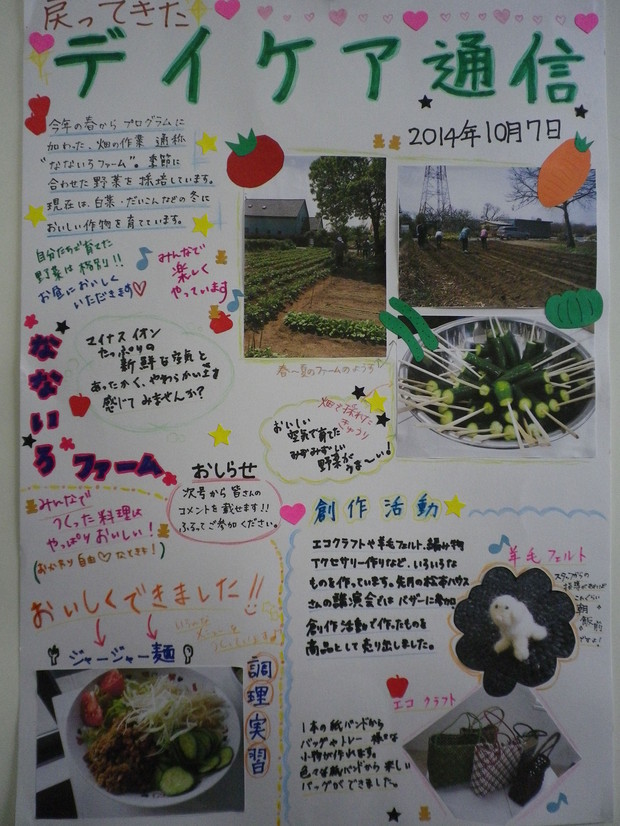 戻ってきた
デイケア通信
2014年10月7日
今年の春からプログラムに
加わった、畑の作業 通称
“なないろファーム”。季節に
合わせた野菜を栽培しています。
現在は、白菜・だいこんなどの冬に
おいしい作物を育てています。
自分たちが育てた
野菜は格別!!
お昼においしく
いただきます♡
みんなで
楽しく
やっています
なないろファーム
マイナスイオン
たっぷりの
新鮮な空気と
あったかく、やわらかい土を
感じてみませんか?
春~夏のファームのようす
畑で採れた
きゅうり
おいしい
空気で育てた
みずみずしい
野菜がうま~い!
おしらせ
次号から皆さんの
コメントを載せます!!
ふるってご参加ください。
みんなで
つくった料理は
やっぱりおいしい!
(おかわり自由♡なときも!)
おいしくできました!!
いろんな
メニューを
つくっていますよ
ジャージャー麺
調理実習
創作活動
エコクラフトや羊毛フェルト、編み物
アクセサリー作りなど、いろいろな
ものを作っています。先月の松本ハウス
さんの講演会ではバザーに参加。
創作活動で作ったものを
商品として売り出しました。
羊毛フェルト
スタッフからの
指導があれば
これぐらい
朝
飯
前
ですよ!
エコクラフト
1本の紙バンドから
バッグやトレー 様々な
小物が作れます。
色々な紙バンドから楽しい
バッグができました。